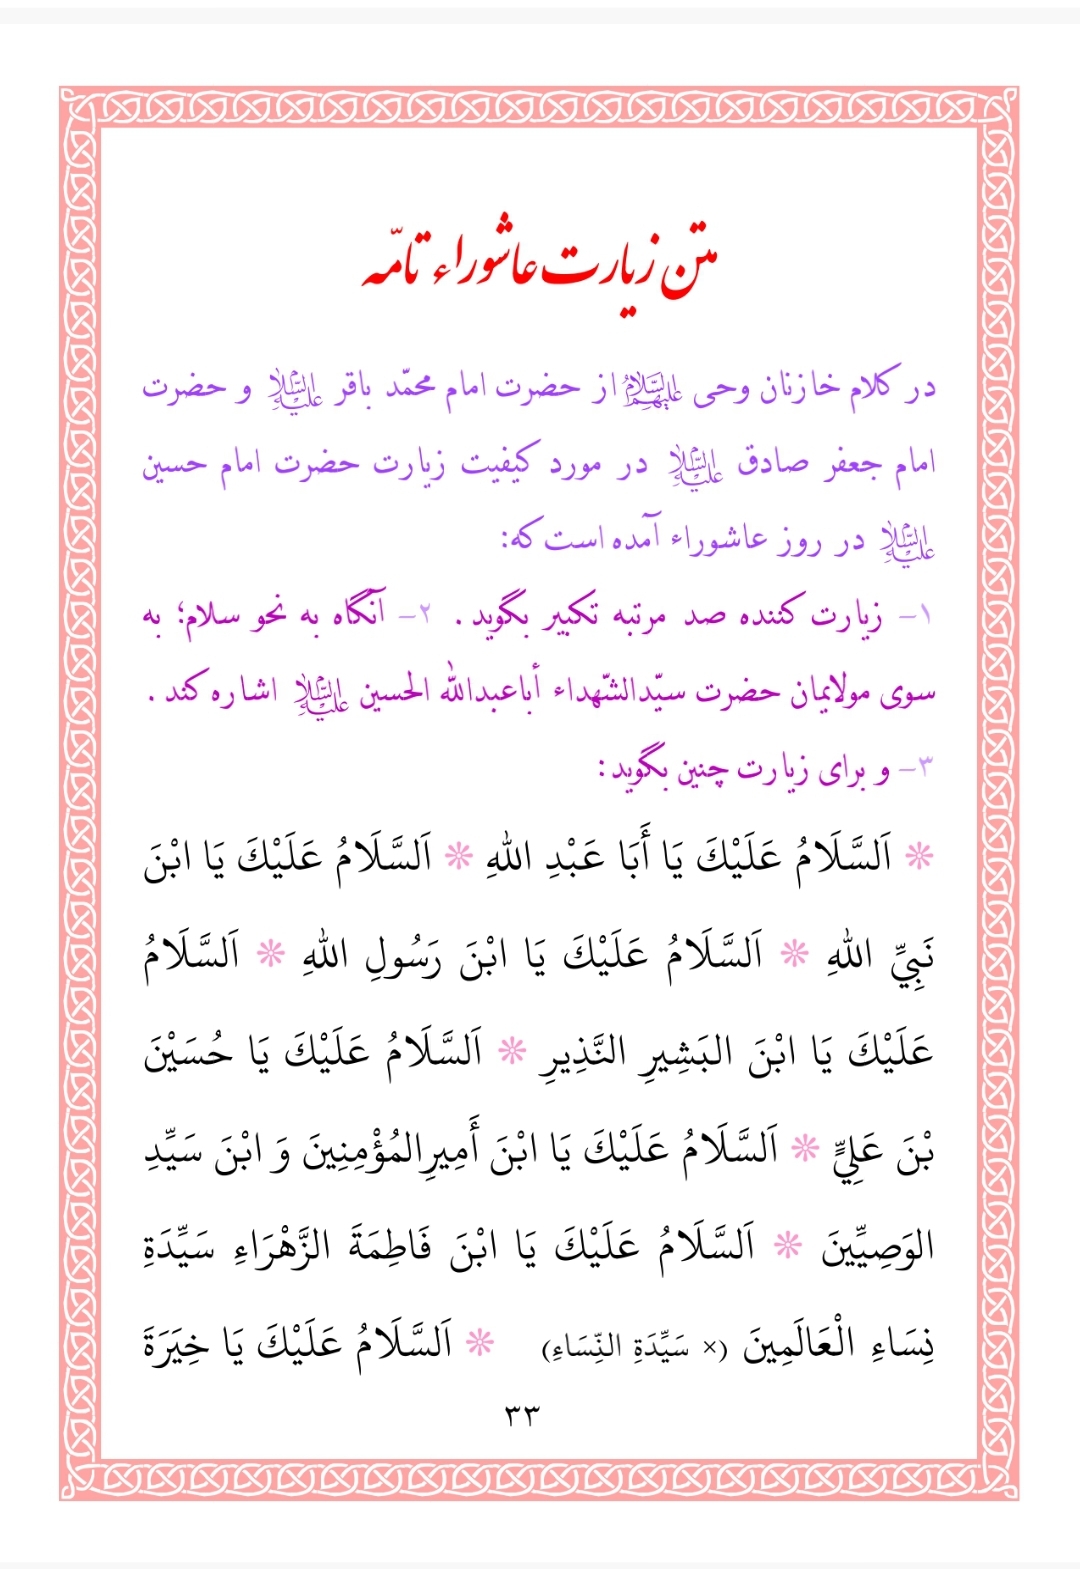 متن زیارت عاشوراء تامّه
در کلام خازنان وحی علیهم السلام از حضرت امام محمّد باقر علیه السلام و حضرت
امام جعفر صادق علیه السلام در مورد کیفیت زیارت حضرت امام حسین
علیه السلام در روز عاشوراء آمده است که:
۱- زیارت کننده صد مرتبه تکبیر بگوید . ۲- آنگاه به نحو سلام؛ به
سوی مولایمان حضرت سیّدالشّهداء أباعبدالله الحسین علیه السلام اشاره کند .
۳- و برای زیارت چنین بگوید :
❊ اَلسَّلَامُ عَلَيْكَ يَا أَبَا عَبْدِ اللهِ ❊ اَلسَّلَامُ عَلَيْكَ يَا ابْنَ
نَبِيِّ اللهِ ❊ اَلسَّلَامُ عَلَيْكَ يَا ابْنَ رَسُولِ اللهِ ❊ اَلسَّلَامُ
عَلَيْكَ يَا ابْنَ البَشِيرِ النَّذِيرِ ❊ اَلسَّلَامُ عَلَيْكَ يَا حُسَيْنَ
بْنَ عَلِيٍّ ❊ اَلسَّلَامُ عَلَيْكَ يَا ابْنَ أَمِيرِالمُؤْمِنِينَ وَ ابْنَ سَيِّدِ
الوَصِيِّينَ ❊ اَلسَّلَامُ عَلَيْكَ يَا ابْنَ فَاطِمَةَ الزَّهْرَاءِ سَيِّدَةِ
نِسَاءِ الْعَالَمِينَ (× سَيِّدَةِ النِّسَاءِ) ❊ اَلسَّلَامُ عَلَيْكَ يَا خِيَرَةَ
٣٣